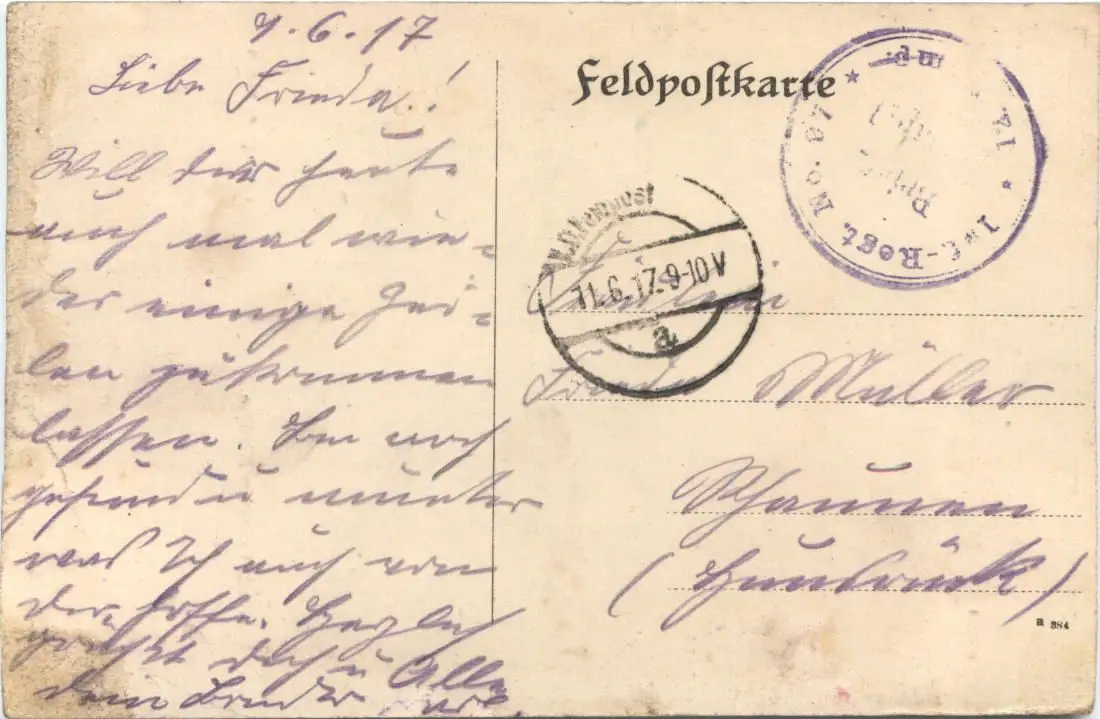 9.6.17
Liebe Frieda!
Will dir heute
auch mal wie-
der einige Zei-
len zukommen
lassen. Bin noch
gesund u munter
was Ich auch von
dir hoffe. Herzlich
grüßt dich u Alle
dein Bruder
Feldpostkarte
Inf.-Regt. No.
11.6.17.9-10V
a
Fräulein
Frieda Müller
Rhaunen
(Hunsrück)
a 384